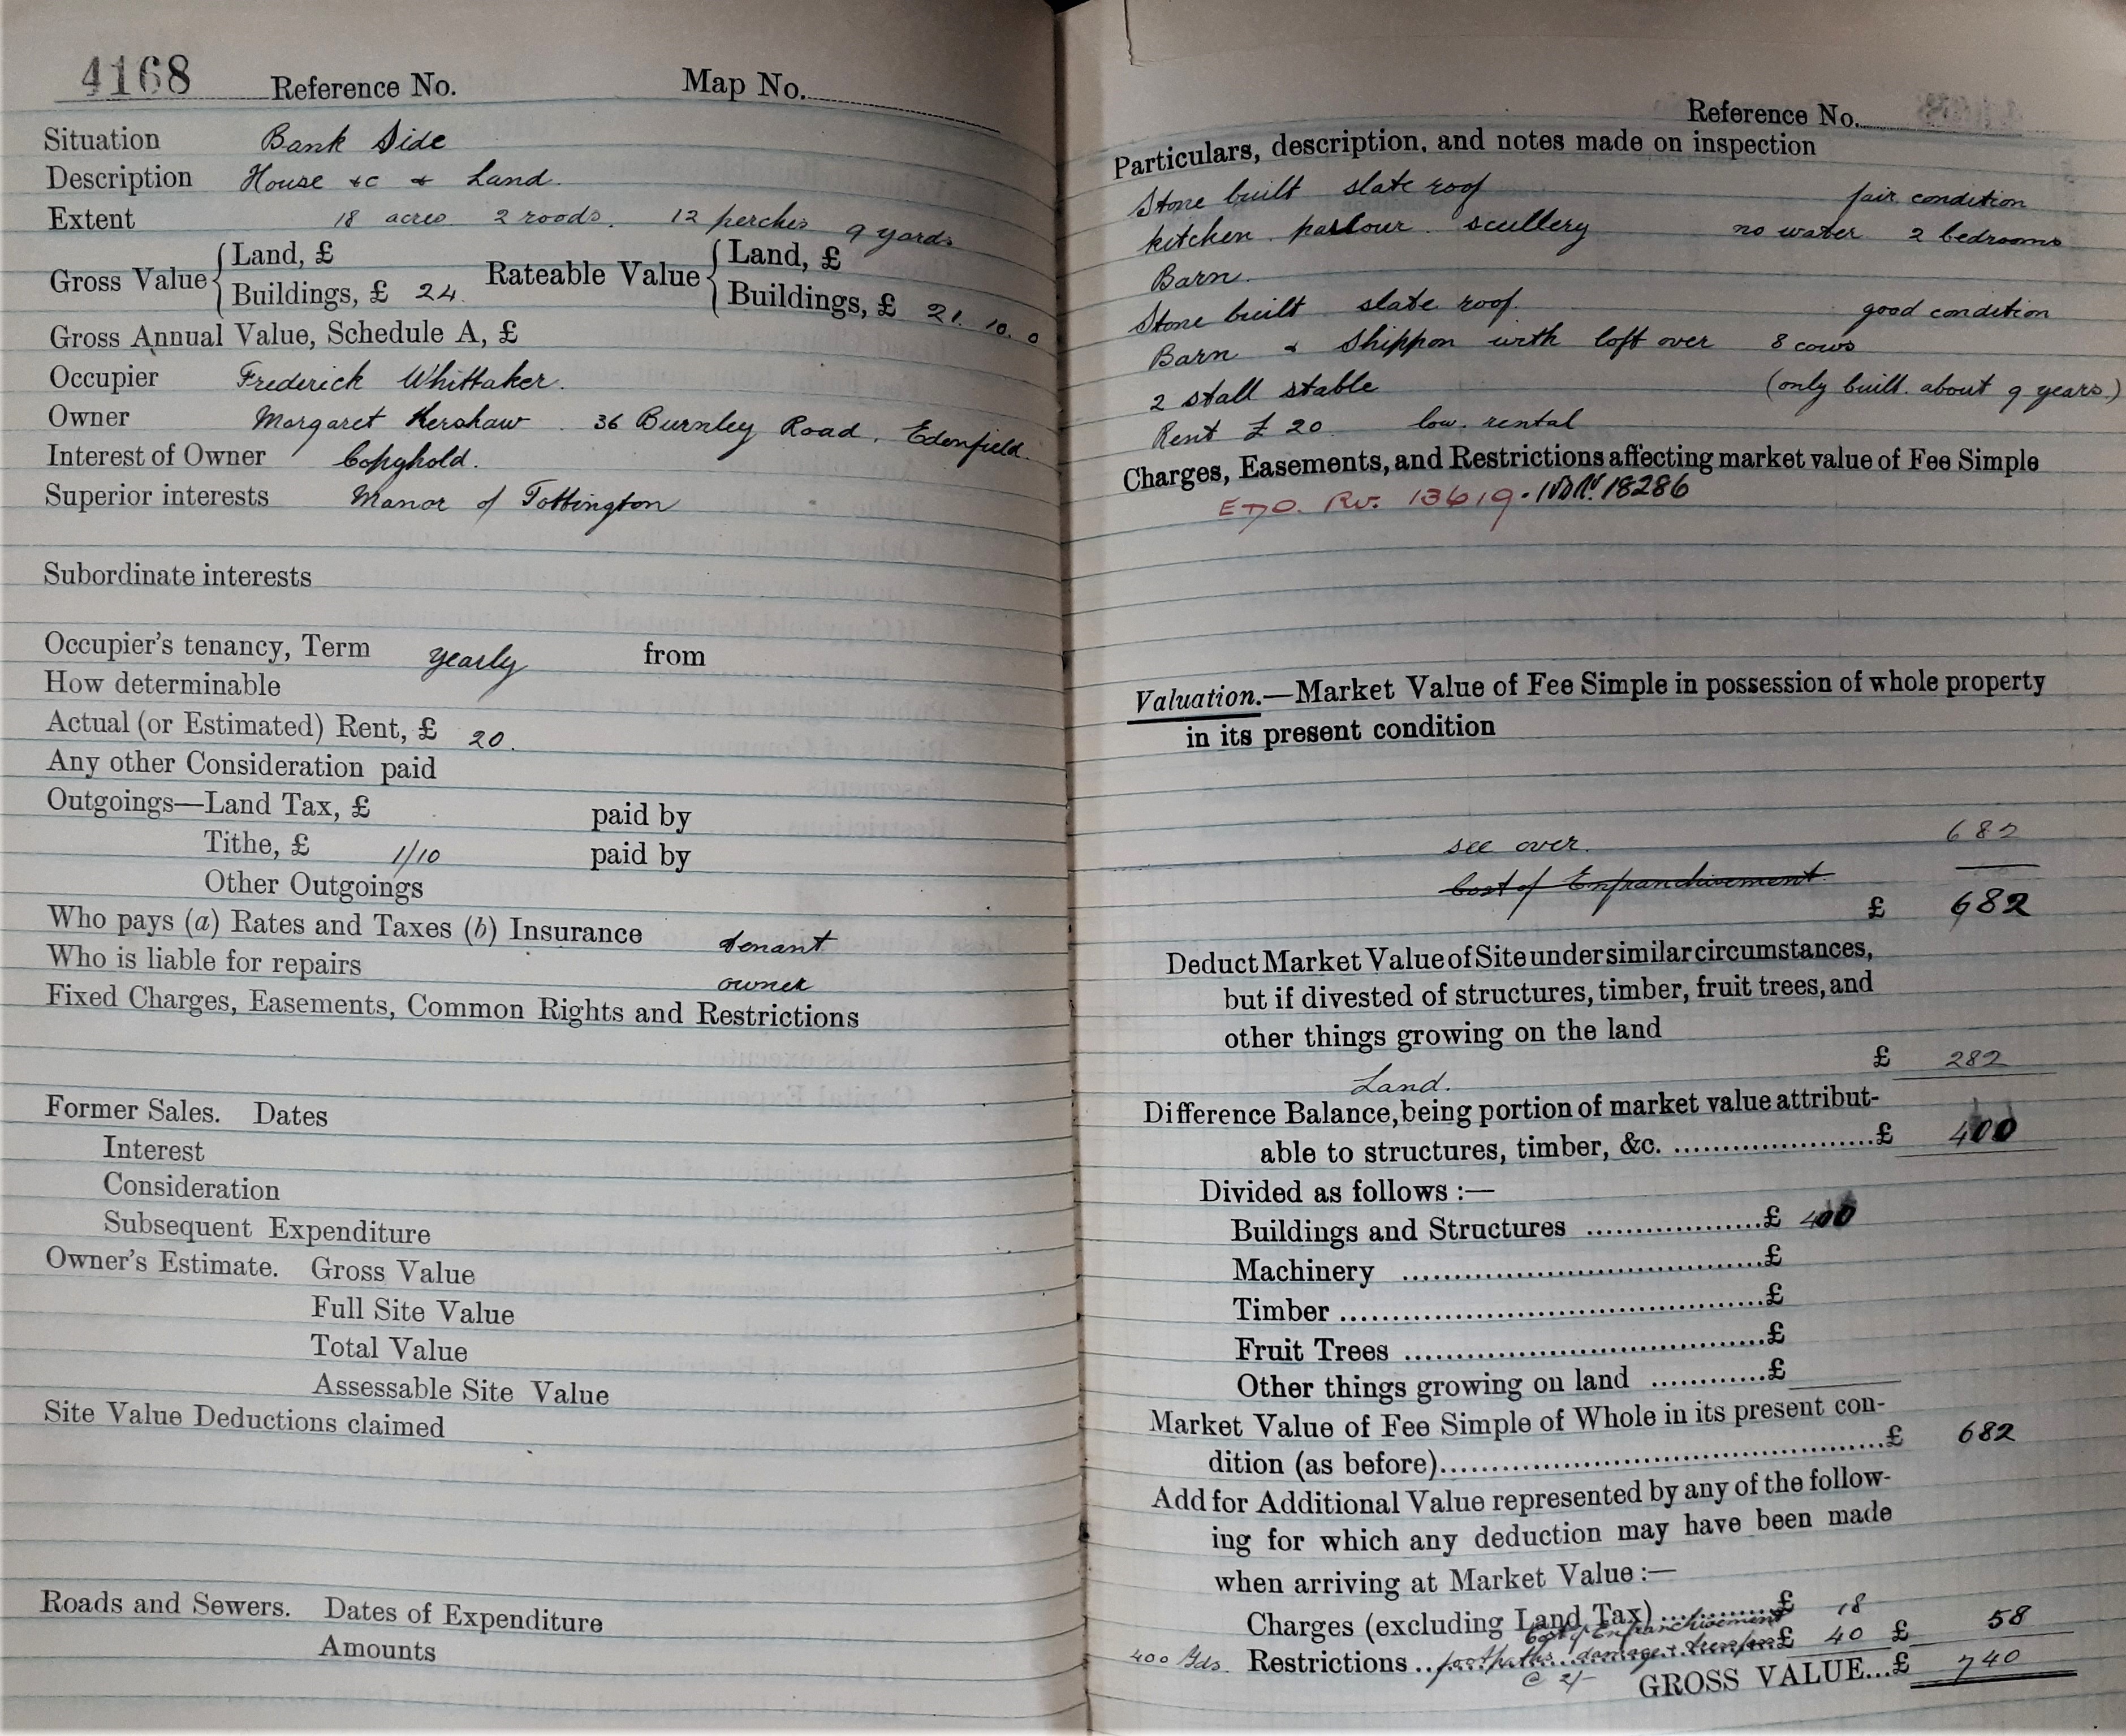 4168 Reference No. Map No.
Situation Bank Side
Description House &c & Land.
Extent 18 acres 2 roods. 12 perches 9 yards
Gross Value { Land, £ Rateable Value { Land, £
Buildings, £ 24. Buildings, £ 21. 10. 0
Gross Annual Value, Schedule A, £
Occupier Frederick Whittaker.
Owner Margaret Kershaw. 36 Burnley Road, Edenfield.
Interest of Owner Copyhold.
Superior interests Manor of Tottington
Subordinate interests
Occupier's tenancy, Term yearly from
How determinable
Actual (or Estimated) Rent, £ 20.
Any other Consideration paid
Outgoings—Land Tax, £ paid by
Tithe, £ 1/10 paid by
Other Outgoings
Who pays (a) Rates and Taxes (b) Insurance tenant
Who is liable for repairs owner
Fixed Charges, Easements, Common Rights and Restrictions
Former Sales. Dates
Interest
Consideration
Subsequent Expenditure
Owner's Estimate. Gross Value
Full Site Value
Total Value
Assessable Site Value
Site Value Deductions claimed
Roads and Sewers. Dates of Expenditure
Amounts
Reference No.
Particulars, description, and notes made on inspection
Stone built slate roof fair condition
kitchen. parlour. scullery no water 2 bedrooms
Barn.
Stone built slate roof. good condition
Barn & Shippon with loft over 8 cows
2 stall stable (only built. about 9 years.)
Rent £20 low. rental
Charges, Easements, and Restrictions affecting market value of Fee Simple
13619. 18286
Valuation.—Market Value of Fee Simple in possession of whole property
in its present condition
see over. 682
Cost of Enfranchisement
£ 682
Deduct Market Value of Site under similar circumstances,
but if divested of structures, timber, fruit trees, and
other things growing on the land
£ 282
Land.
Difference Balance, being portion of market value attribut-
able to structures, timber, &c. ....................£ 400
Divided as follows :—
Buildings and Structures ..................£ 400
Machinery ....................................£
Timber ..........................................£
Fruit Trees ....................................£
Other things growing on land ............£
Market Value of Fee Simple of Whole in its present con-
dition (as before)............................................£ 682
Add for Additional Value represented by any of the follow-
ing for which any deduction may have been made
when arriving at Market Value :—
Charges (excluding Land Tax) ............£ 18
Cost of Enfranchisement £ 58
400 Yds. Restrictions ..footpaths. damage & trespass £ 40
@ 2/- GROSS VALUE...£ 740